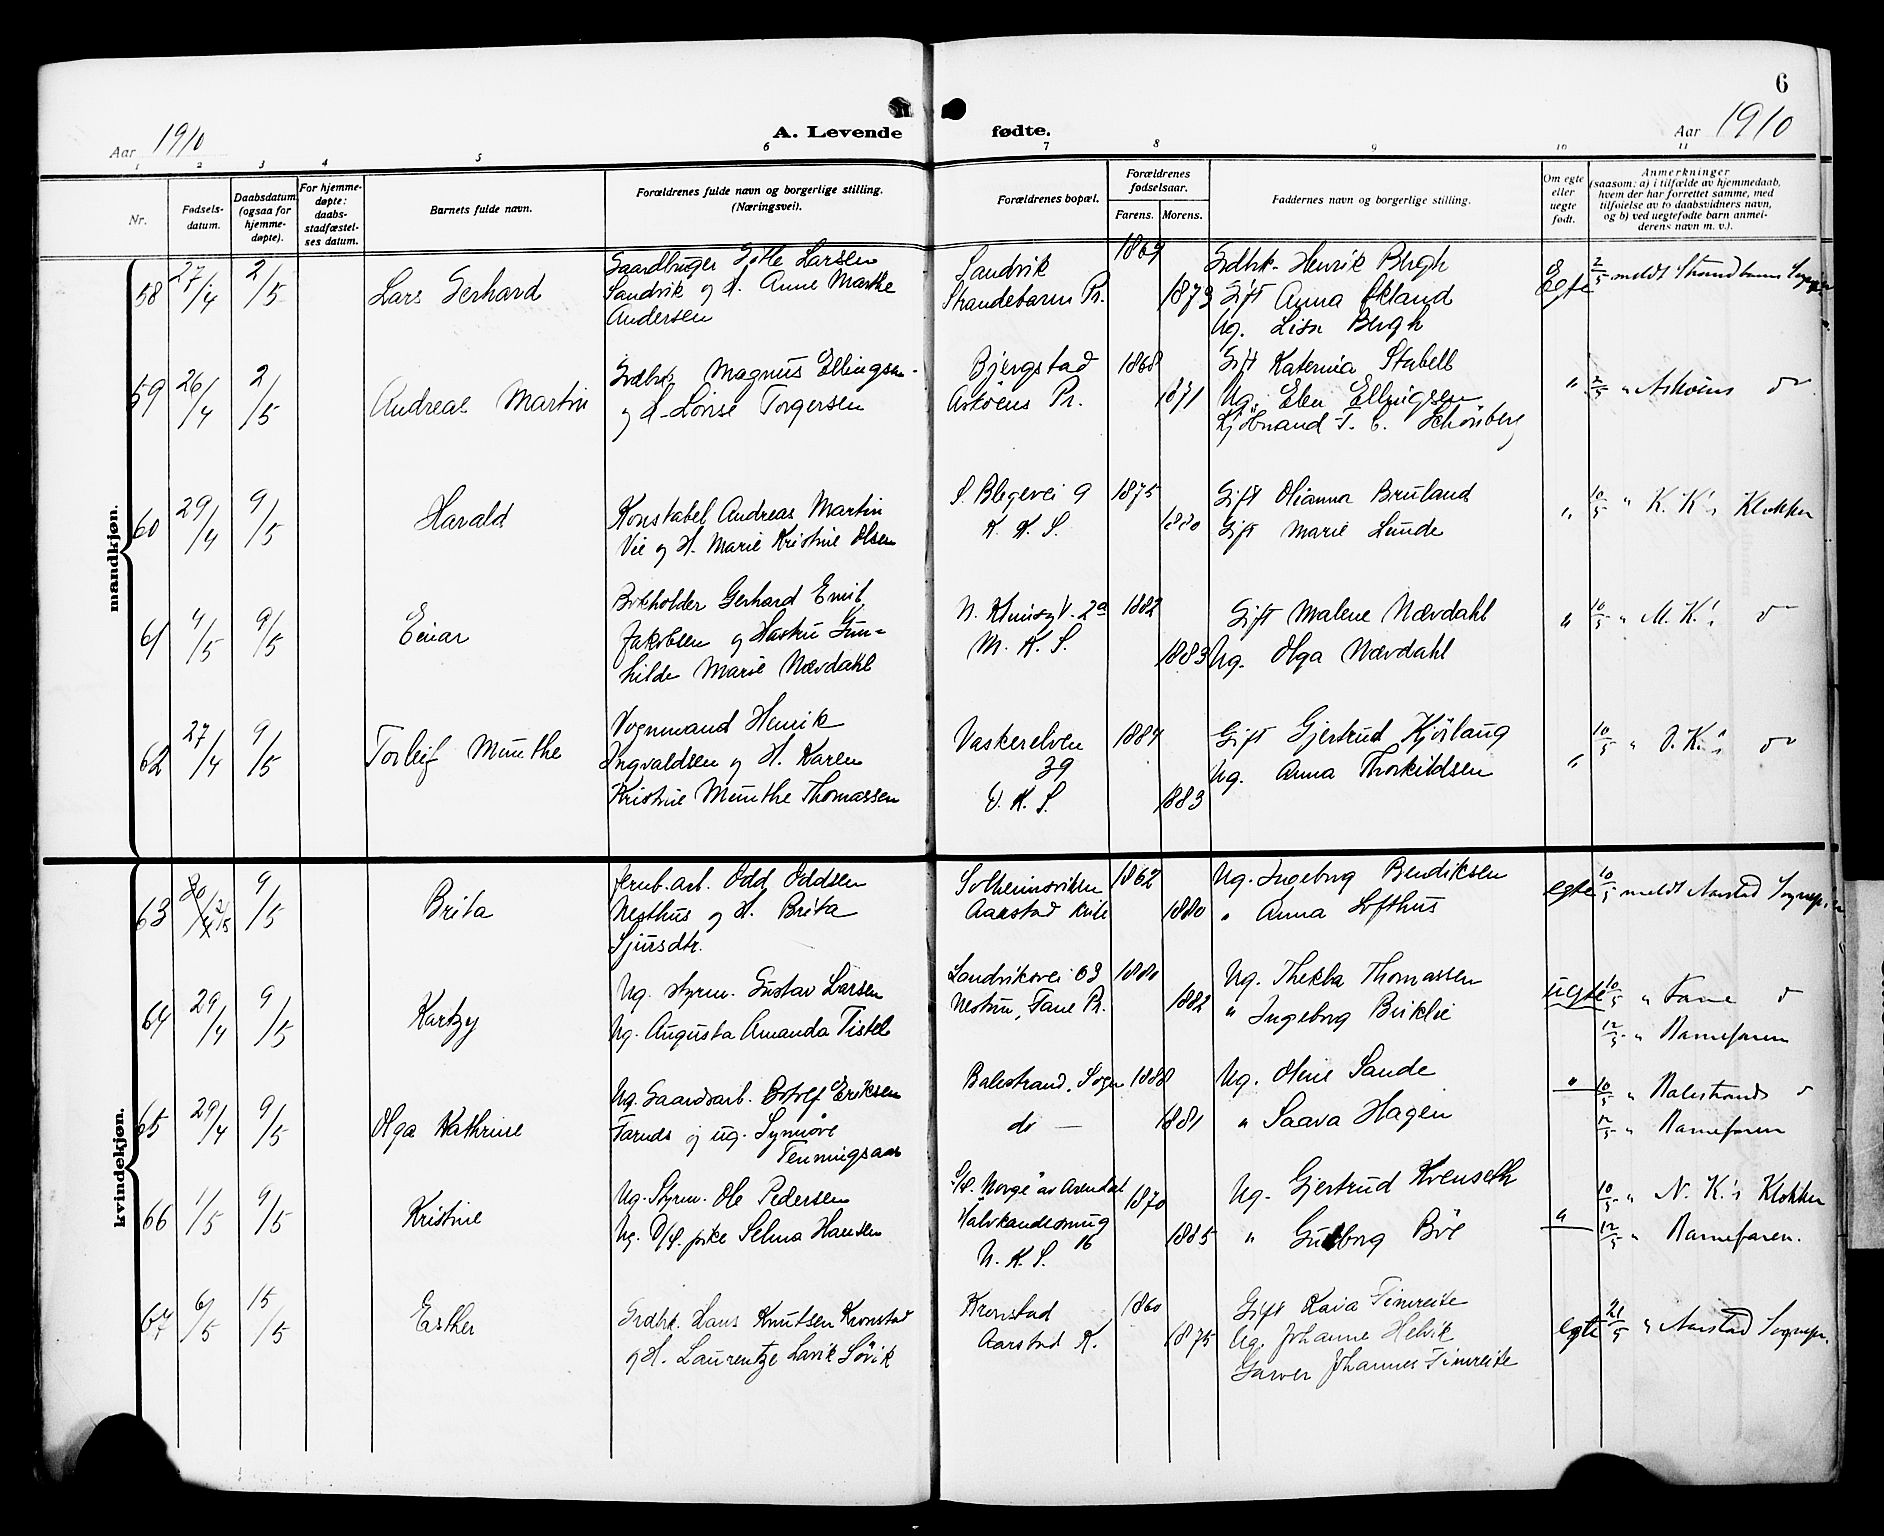 6
Aar 1910
A. Levende fødte.
Aar 1910
1 2 3 4 5 6 7 8 9 10 11
Nr.
Fødsels-
datum.
Daabsdatum
(ogsaa for
hjemme-
døpte).
For hjemme-
døpte:
daabs-
stadfæstel-
ses datum.
Barnets fulde navn.
Forældrenes fulde navn og borgerlige stilling.
(Næringsvei).
Forældrenes bopæl.
Forældrenes
fødselsaar.
Farens. Morens.
Faddernes navn og borgerlige stilling.
Om egte
eller
uegte
født.
Anmerkninger
(saasom: a) i tilfælde av hjemmedaab,
hvem der har forrettet samme, med
tilføielse av to daabsvidners navn,
og b) ved uegtefødte barn anmel-
derens navn m. v.).
mandkjøn.
58 27/4 2/5 Lars Gerhard
Gaardbruger Larsen
Sandvik og H. Anne Marthe
Andersen
Sandvik
Strandebarm Pr.
1869 1873
Grdbr. Henrik Bergh
Gift Anna Økland
Ug. Lisa Bergh
Egte 2/5 meldt Strandebarm
59 26/4 2/5 Andreas Martin
Grdbr. Magnus Ellingsen
og H. Lovise Torgersen
Bjergstad
Askøens Pr.
1868 1871
Gift Katerina Stabell
Ug. Ellingsen
Kjøbmand T. C. Schönberg
" 2/5 " Askøens do
60 29/4 9/5 Harald
Konstabel Andreas Martin
Vie og H. Marie Kristine Olsen
S. Blegevei 9
K. K. S.
1875 1880
Gift Olianna Bruland
Gift Marie Lunde
" 10/5 " K. K.'s Klokker
61 4/5 9/5 Einar
Bokholder Gerhard Emil
Jakobsen og Hustru Gun=
hilde Marie Nævdahl
M. K. S.
1882 1883
Gift Malene Nævdahl
Ug. Olga Nævdahl
" 10/5 " M. K.'s do
62 27/4 9/5 Torleif Munthe
Vognmand Henrik
Ingvaldsen og H. Karen
Kristine Munthe Thomassen
Vaskerelven
39
D. K. S.
1884 1883
Gift Gjertrud Kjörlaug
Ug. Anna Thorkildsen
" 10/5 " D. K.'s do
kvindekjøn.
63 2/5 9/5 Brita
Jernb. arb. Odd Oddsen
Nesthus og H. Brita
Sjursdtr.
Solheimsviken
Aarstad
1862 1880
Ug. Ingeborg Bendiksen
" Anna Lofthus
egte 10/5 meldt Aarstad Sognepr.
64 29/4 9/5
Ug. styrm. Gustav Larsen
Ug. Augusta Amanda Tistel
Sandviksvei 63
Nestun, Fane Pr.
1880 1882
Ug. Thekla Thomassen
" Ingeborg Birklie
uegte 10/5 " Fane do
12/5 " Barnefaren
65 29/4 9/5 Olga Kathrine
Ug. Gaardsarb. Botolf Eriksen
Farnes og ug. Synnøve
Tenningsaas
Balestrand, Sogn
do —
1888 1881
Ug. Oline Sande
" Saava Hagen
" 10/5 " Balestrands do
12/5 " Barnefaren
66 1/5 9/5 Kristine
Ug. Styrm. Ole Pedersen
Ug. D/S. pike Selma Hansen
S/S. "Norge" av Arendal
Halvkandesmug
16
N. K. S.
1870 1885
Ug. Gjertrud Kvenseth
" Gudborg Böe
" 10/5 " N. K.'s Klokker
12/5 " Barnefaren.
67 6/5 15/5 Esther
Grdbr. Hans Knutsen Kronstad
og H. Laurentze Larik Sövik
Kronstad
Aarstad K.
1860 1875
Gift Kaia Timreite
Ug. Johanne Helvik
Garver Johannes Timreite
egte 21/5 " Aarstad Sognepr.